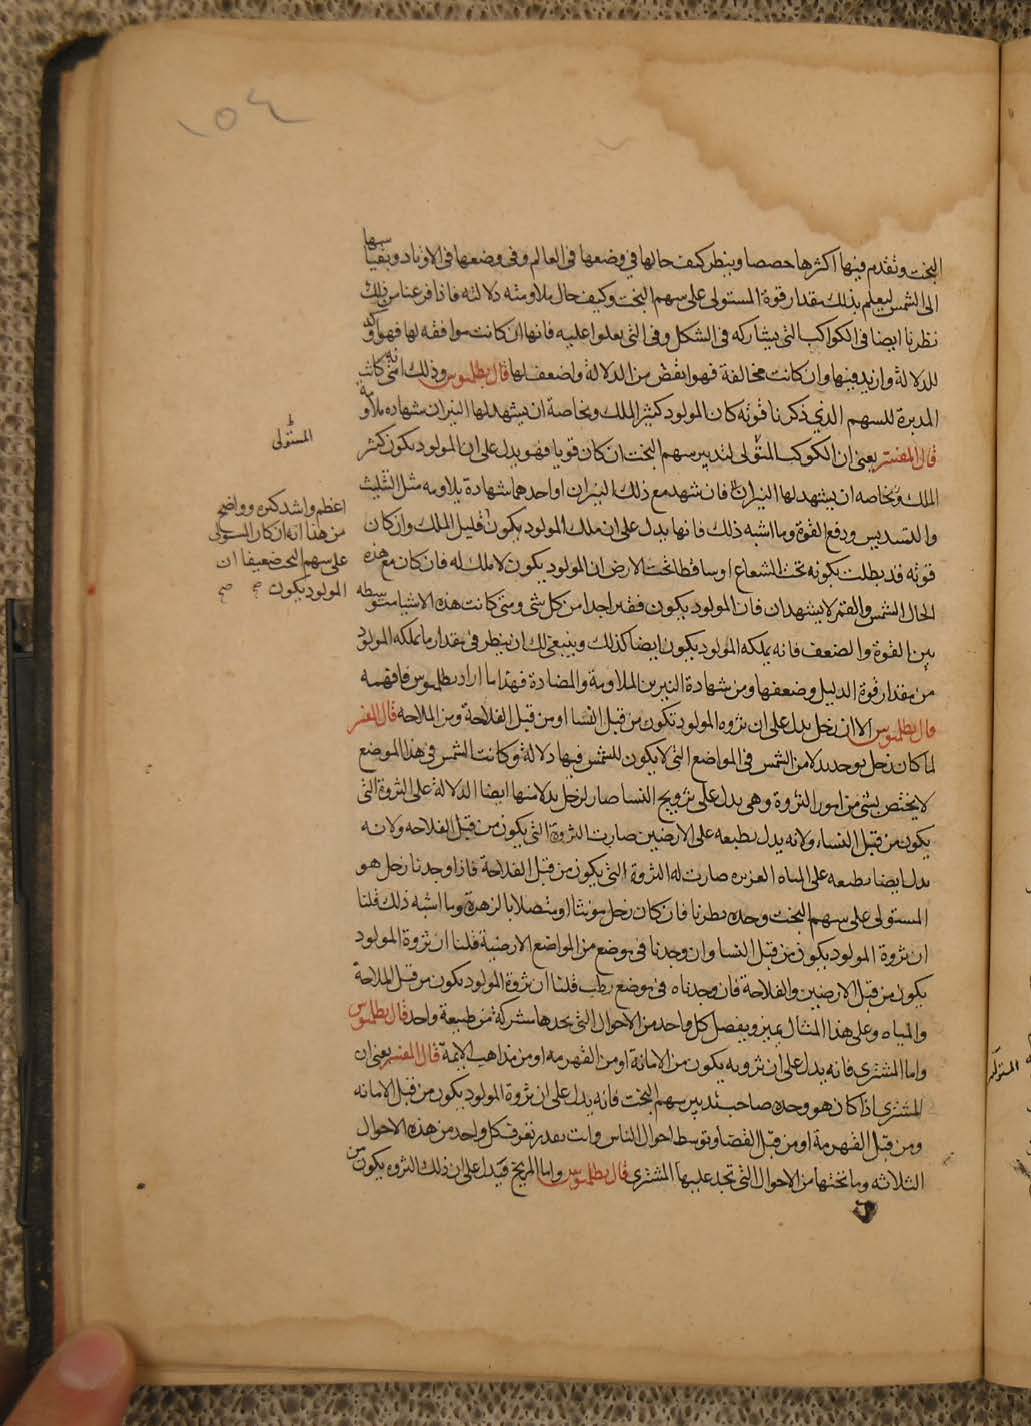 ١٥٤
البخت ونقدم فيها اكثرها حصصا وينظر كيف حالها في وضعها في العالم وفي وضعها في الاوتاد وبقياسها
الى الشمس ليعلم بذلك مقدار قوة المستولى على سهم البخت وكيف حال ملاومته دلالته فاذا فرغنا من ذلك
نظرنا ايضا في الكواكب التي يشاركه في الشكل وفي التي يعلوا عليه فانها ان كانت موافقه لها فهو اوكد
للدلالة وازيد فيها وان كانت مخالفة فهو انقض من الدلالة واضعف لها قال بطلميوس وذلك انه متى كانت
المدبرة للسهم الذي ذكرنا قوته كان المولود كثير الملك وبخاصة ان يشهد لها النيران شهاده ملاومة
قال المفسر يعني ان الكوكب المتولى لتدبير سهم البخت ان كان قويا فهو يدل على ان المولود يكون كثير
الملك وبخاصه ان يشهد لها النيران فان شهد مع ذلك النيران او احدهما شهادة يلاومه مثل التثليث
والتسديس ودفع القوة وما اشبه ذلك فانها يدل على ان ملك المولود يكون قليل الملك وان كان
قوته قد بطلت بكونه تحت الشعاع او ساقطا تحت الارض ان المولود يكون لا ملك له فان كان مع هذه
الحال الشمس والقمر لا يشهدان فان المولود يكون فقيرا جدا من كل شى ومتى كانت هذه الاشيا متوسطه
بين القوة والضعف فانه يملكه المولود يكون ايضا كذلك وينبغي لك ان ينظر في مقدار ما يملكه المولود
من مقدار قوة الدليل وضعفها ومن شهادة النيرين الملاومة والمضادة فهذا ما اراد بطلميوس فافهمه
قال بطلميوس الا ان زحل يدل على ان ثروه المولود تكون من قبل النسا او من قبل الفلاحة ومن الملاحه قال المفسر
لما كان زحل يوجد بدلا من الشمس في المواضع التي لا يكون للشمس فيها دلالة وكانت الشمس في هذا الموضع
لا يختص بشي من امور الثروة وهي يدل على تزويج النسا صار لزحل بدلا منها ايضا الدلالة على الثروة التي
يكون من قبل النساء ولانه يدل بطبعه على الارضين صارت الثروة التي يكون من قبل الفلاحه ولانه
يدل ايضا بطبعه على المياه الغزيره صارت له الثروة التي يكون من قبل الفلاحة فاذا وجدنا زحل هو
المستولى على سهم البخت وحده نظرنا فان كان زحل مونثا او متصلا بالزهرة وما اشبه ذلك قلنا
ان ثروة المولود يكون من قبل النسا وان وجدنا في موضع من المواضع الارضية قلنا ان ثروة المولود
يكون من قبل الارضيين والفلاحة فان وجدناه في موضع رطب قلنا ان ثروة المولود يكون من قبل الملاحة
والمياه وعلى هذا المثال يميز ويفصل كل واحد من الاحوال التي يجدها مشركة من طبيعة واحد قال بطلميوس
واما المشترى فانه يدل على ان ثروته يكون من الامانة او من القهرمه او من مذاهب الايمة قال المفسر يعنى ان
المشترى اذا كان هو وحده صاحب تدبير سهم البخت فانه يدل على ان ثروة المولود يكون من قبل الامانه
ومن قبل القهرمة او من قبل القضا وتوسط احوال الناس وانت تقدر تعرف كل واحد من هذه الاحوال
الثلاثه وما تحتها من الاحوال التي تجد عليها المشترى قال بطلميوس واما المريخ فيدل على ان ذلك الثروه يكون من
المستولى
اعظم واشد كثره وواضح
من هذا انه ان كان المستولى
على سهم البخت ضعيفا ان
المولود يكون صح صح